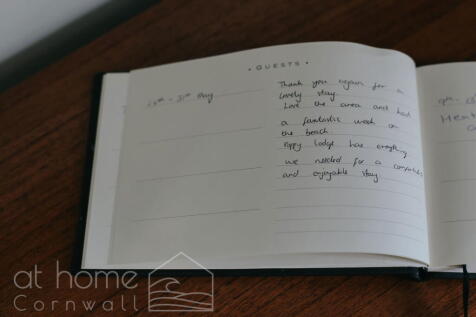 • GUESTS •
- 31st May
Thank you again for a
lovely stay
Love the area and had
a fantastic week on
the beach
Poppy lodge has everything
we needed for a comfortable
and enjoyable stay
at home
Cornwall